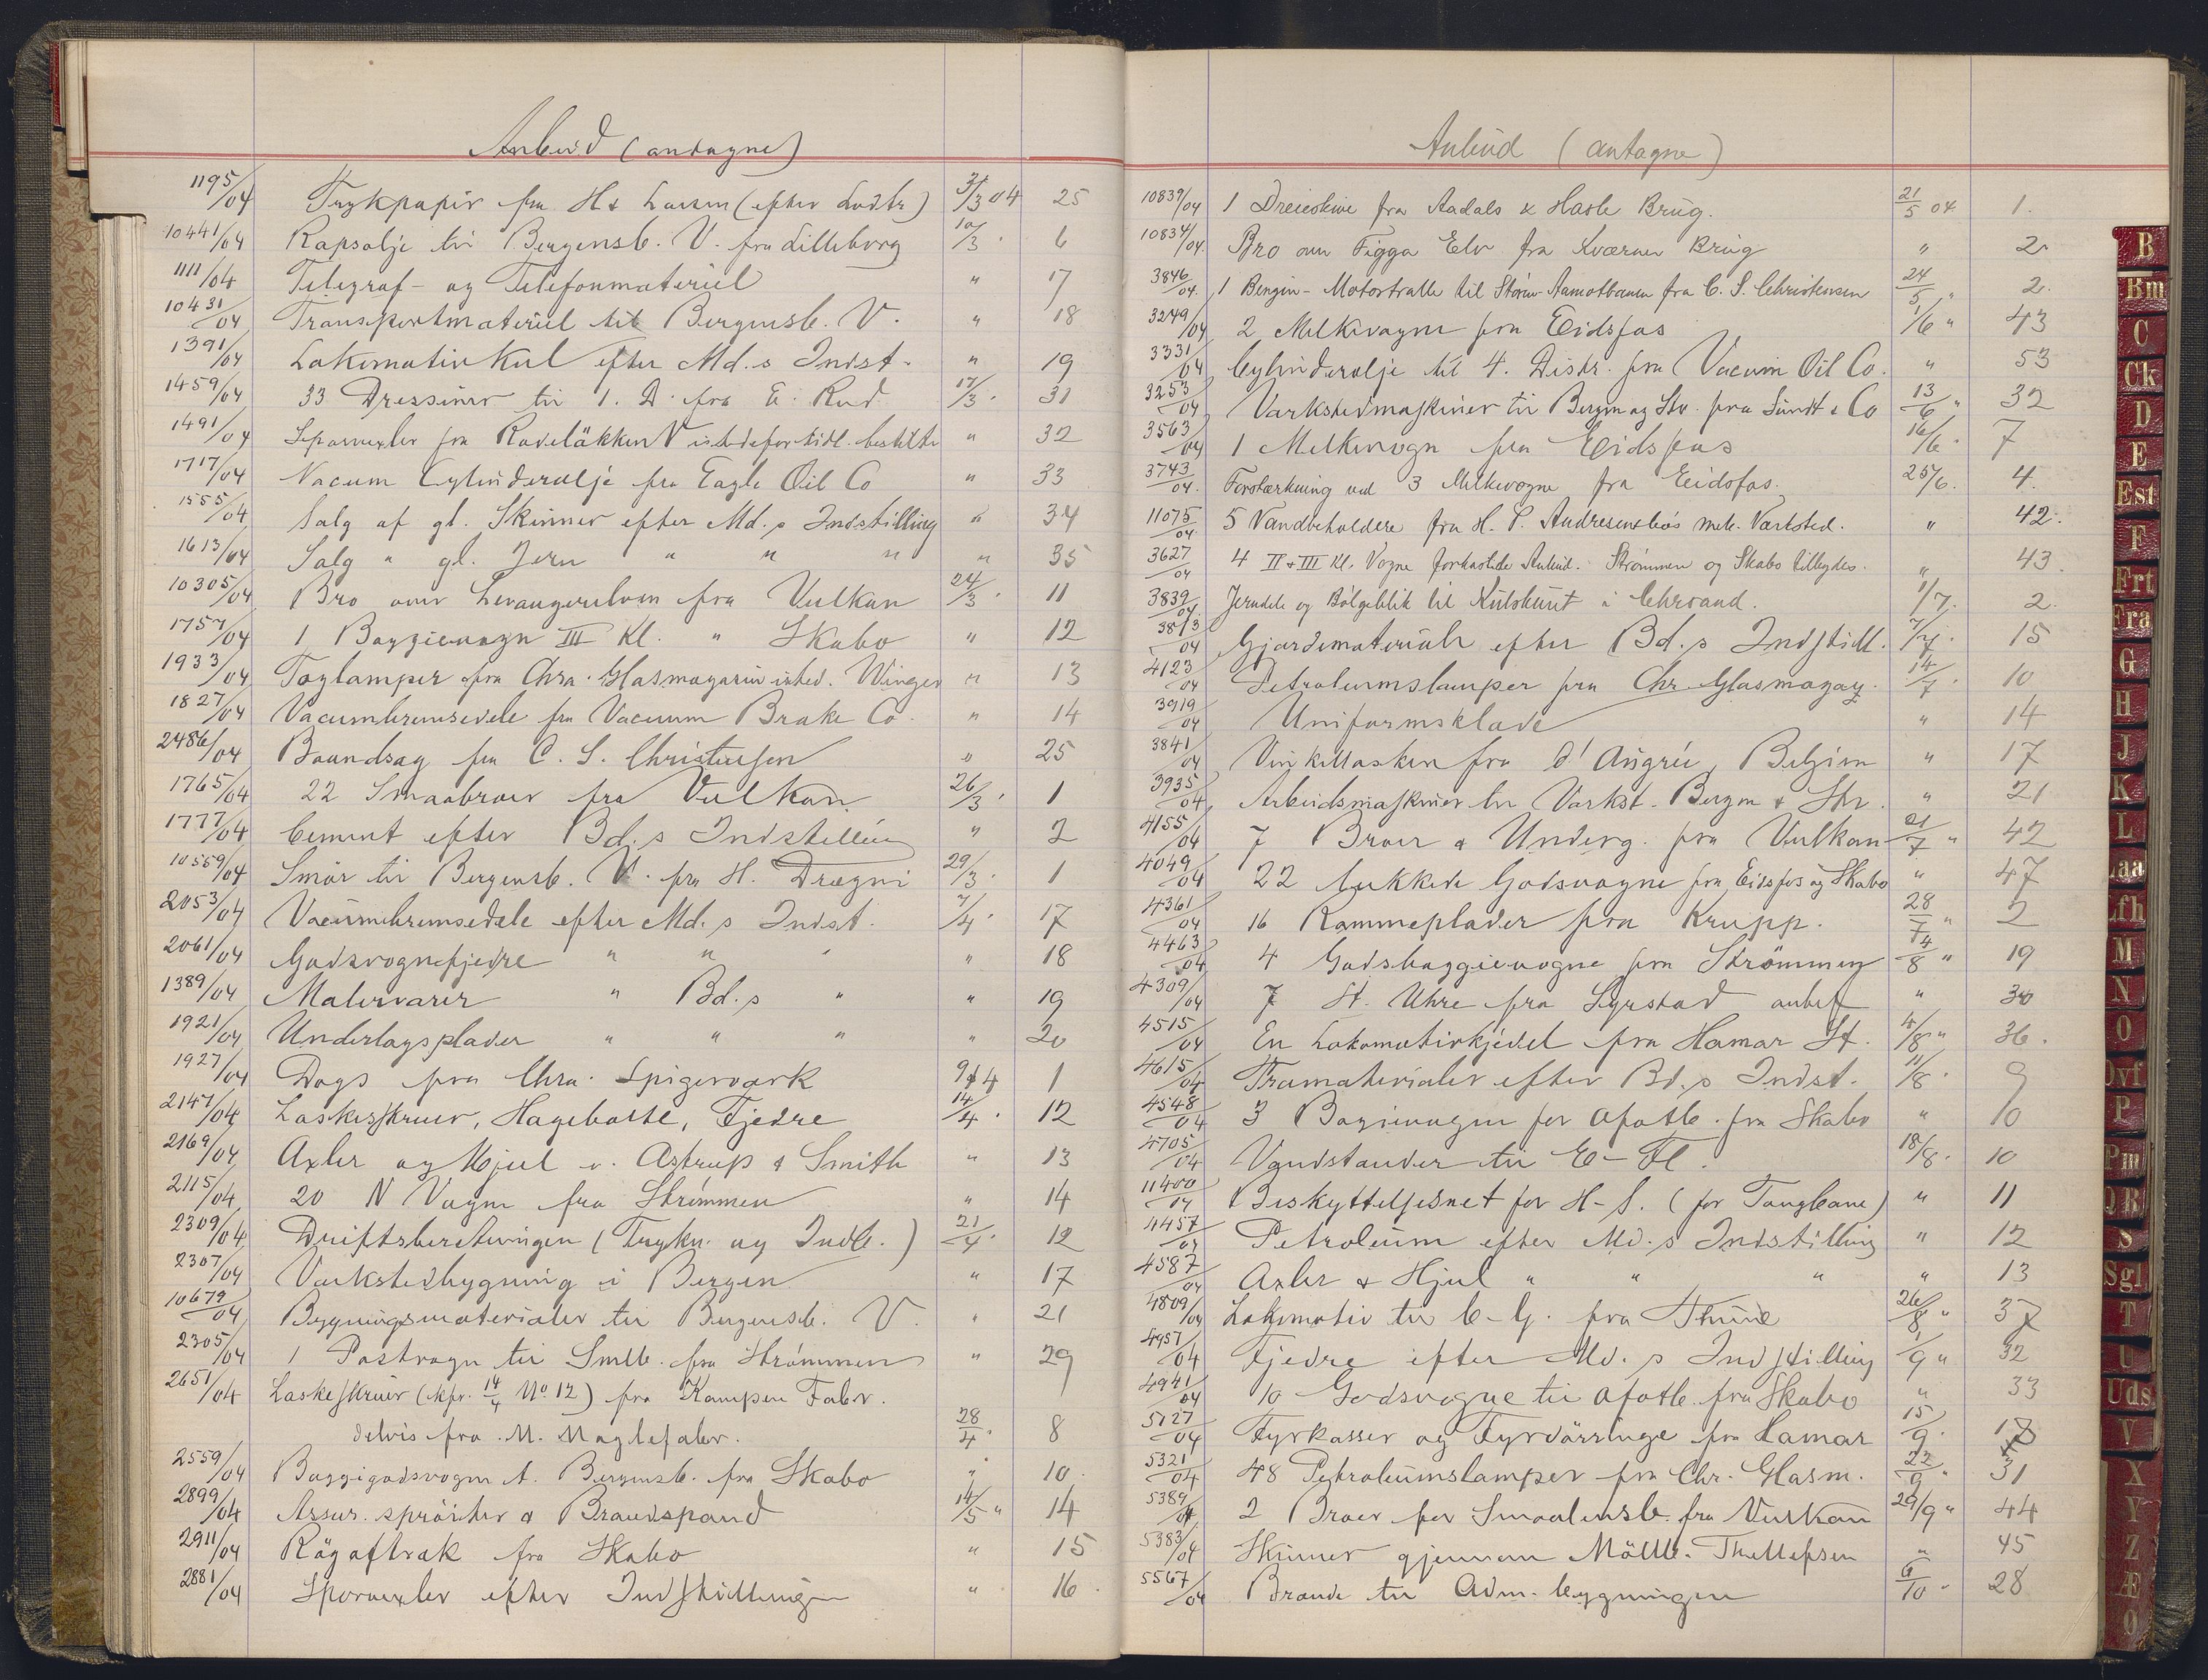 Anbud (antagne)
1195/04 Trykpapir fra H & Larsen (efter Lodtr) 3/3 04 25
10441/04 Rapsolje til Bergensb. V. fra Lilleborg 10/3 " 6
1111/04 Telegraf- og Telefonmateriel " 17
10431/04 Transportmateriel til Bergensb. V. " 18
1391/04 Lokomotivkul efter Md.s Indst. " 19
1459/04 33 Dressiner til 1. D. fra E. Rud 17/3 " 31
1491/04 Sporvexler fra istedetfor tidl. bestilte " 32
1717/04 Vacum Cylinderolje fra Eagle Oil Co " 33
1555/04 Salg af gl. Skinner efter Md.s Indstilling " 34
1613/04 Salg " gl. Jern " " " " 35
10305/04 Bro over Levangerelven fra Vulkan 24/3 " 11
1757/04 1 Boggievogn III Kl. " Skabo " 12
1933/04 Toglamper fra Chra. Glasmagasin isted. Winger " 13
1827/04 Vacumbremsedele fra Vacuum Brake Co. " 14
2486/04 Baandsag fra C. S. Christensen " 25
1765/04 22 Smaabroer fra Vulkan 26/3 " 1
1777/04 Cement efter Bd.s Indstilling " 2
10559/04 Smör til Bergensb. V. fra H. Drægni 29/3 " 1
2053/04 Vacumbremsedele efter Md.s Indst. 7/4 " 17
2061/04 Godsvognsfjedre " " " " 18
1389/04 Malervarer " Bd.s " " 19
1921/04 Underlagsplader " " " " 20
1927/04 Dogs fra Chra. Spigerværk 9/4 1
2147/04 Laskeskruer, Hagebolte, Fjedre 14/4 " 12
2169/04 Axler og Hjul v. Astrup & Smith " 13
2115/04 20 N Vogne fra Strømmen " 14
2309/04 Driftsberetningen (Trykn. og Indb.) 21/4 " 12
2307/04 Verkstedbygning i Bergen " 17
10679/04 Bygningsmaterialer til Bergensb. V. " 21
2305/04 1 Postvogn til Smlb. fra Strömmen " 29
2651/04 Laskeskruer (kfr. 14/4 No 12) fra Kampen Fabr.
delvis fra M. Maglefabr. 28/4 " 8
2559/04 Boggigodsvogne t. Bergensb. fra Skabo " 10
2899/04 Assur. spröiter & Brandspand 14/5 " 14
2911/04 Rögaftræk fra Skabo " 15
2881/04 Sporvexler efter Indstilling " 16
Anbud (antagne)
10839/04 1 Dreieskive fra Aadals & Hasle Brug. 21/5 04 1.
10834/04 Bro over Figga Elv fra Kværner Brug " 2
3846/04 1 Benzin-Motortralle til Stören-Aamotbanen fra C. S. Christensen 24/5 " 2.
3249/04 2 Melkevogne fra Eidsfos 1/6 " 43
3331/04 Cylinderolje til 4. Distr. fra Vacuum Oil Co. " 53
3253/04 Verkstedmaskiner til Bergen og Stv. fra Sundt & Co 13/6 " 32
3563/04 1 Melkevogn fra Eidsfos 16/6 " 7
3743/04 Forstærkning ved 3 Melkevogne fra Eidsfos. 25/6. 4.
11075/04 5 Vandbeholdere fra H. P. mek. Værksted. " 42.
3627/04 4 II & III Kl. Vogne forkastede Anbud. Strømmen og Skabo tilbydes. " 43.
3839/04 Jerndele og Bölgeblik til Kulskuret i Chrsand. 1/7. 2.
3813/04 Gjærdematerialer efter Bd.s Indstill. 7/7 " 15
4123/04 Petroleumslamper fra Chr. Glasmagaz. 14/7 " 10
3919/04 Uniformsklæde " 14
3841/04 Vinkellasker fra d'Angrée, Belgien " 17
3935/04 Arbeidsmaskiner til Værkst. Bergen & Str. " 21
4155/04 7 Broer & Underg. fra Vulkan 21/7 " 42
4049/04 22 lukkede Godsvogne fra Eidsfos og Skabo " 47
4361/04 16 Rammeplader fra Krupp. 28/7 " 2
4463/04 4 Godsboggievogne fra Strömmen 4/8 " 19
4309/04 7 St. Uhre fra Syrstad anbef " 30
4515/04 En Lokomotivkjedel fra Hamar St. 4/8 " 36.
4615/04 Træmaterialer efter Bd.s Indst. 11/8 " 9
4548/04 3 Bogievogne for Ofotb. fra Skabo " 10
4705/04 Vandstander til E-Fl. 18/8 " 10
11400/04 Beskyttelsesnet for H-S. (for Taugbane) " 11
4457/04 Petroleum efter Md.s Indstilling " 12
4587/04 Axler & Hjul " " " " 13
4809/04 Lokomotiv til C-G. fra Thune 26/8 " 37
4957/04 Fjedre efter Md.s Indstilling 1/9 " 32
4941/04 10 Godsvogne til Ofotb. fra Skabo " 33
5127/04 Fyrkasser og Fyrdörringe fra Hamar 15/9 " 17
5321/04 48 Petroleumslamper fra Chr. Glasm. 22/9 " 31
5389/04 2 Broer for Smaalensb. fra Vulkan 29/9 " 44
5383/04 Skinner gjennem Möllb. Thellefsen " 45
5567/04 Brænde til Adm. bygningen 6/10 " 28
B
Bm
C
Ck
D
E
Est
F
Frt
Fra
G
H
J
K
L
Laa
Lfh
M
N
O
Ovf
P
Pm
QR
S
Sgl
T
U
Uds
V
X
Y
Z
Æ
Ø